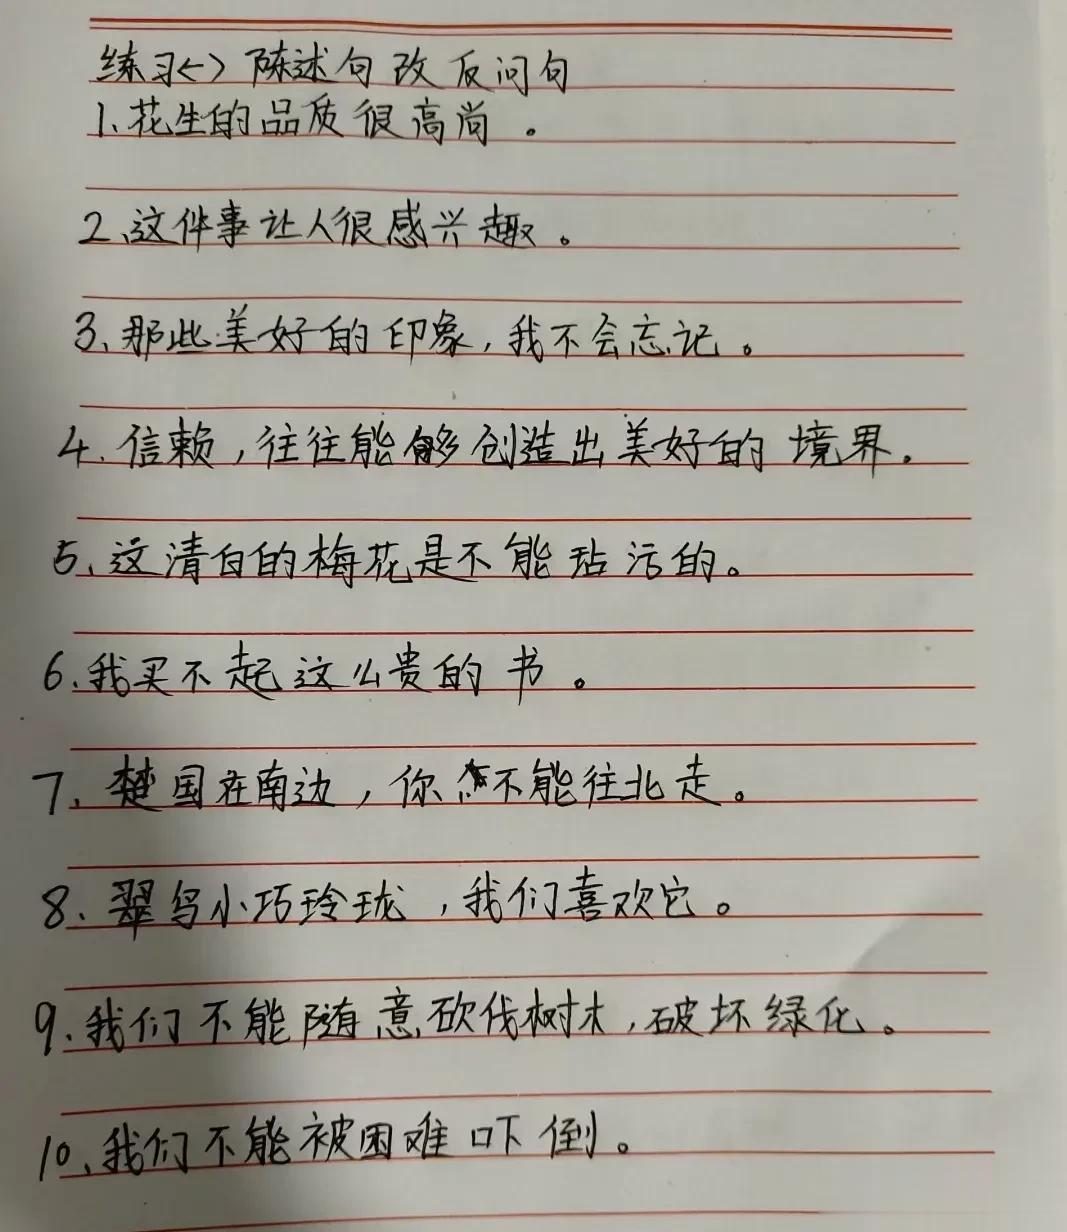 练习<> 陈述句改反问句
1、花生的品质很高尚。
2、这件事让人很感兴趣。
3、那些美好的印象,我不会忘记。
4、信赖,往往能够创造出美好的境界。
5、这清白的梅花是不能玷污的。
6、我买不起这么贵的书。
7、楚国在南边,你不能往北走。
8、翠鸟小巧玲珑,我们喜欢它。
9、我们不能随意砍伐树木,破坏绿化。
10、我们不能被困难吓倒。